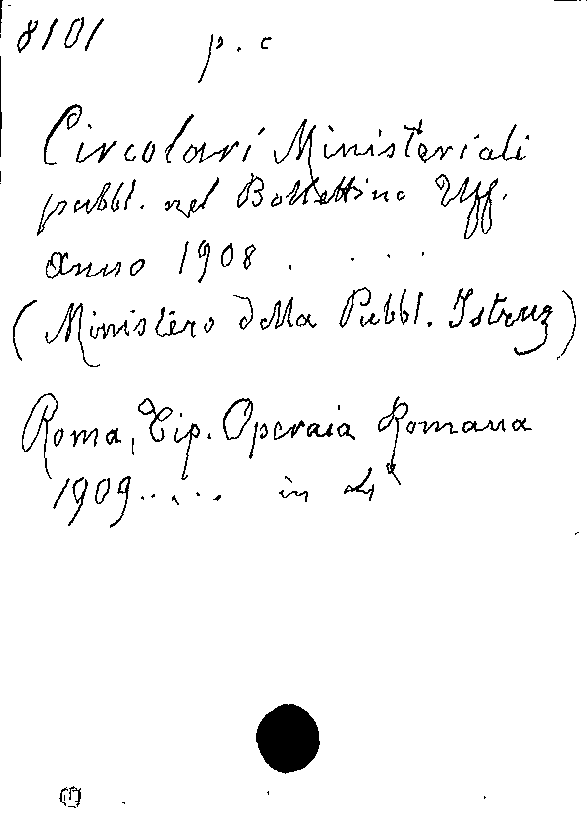 8101 p. c
Circolari Ministeriali
pubbl. nel Bollettino Uff.
anno 1908 . . . .
(Ministero della Pubbl. Istruz)
Roma, Tip. Operaia Romana
1909..... in 4°